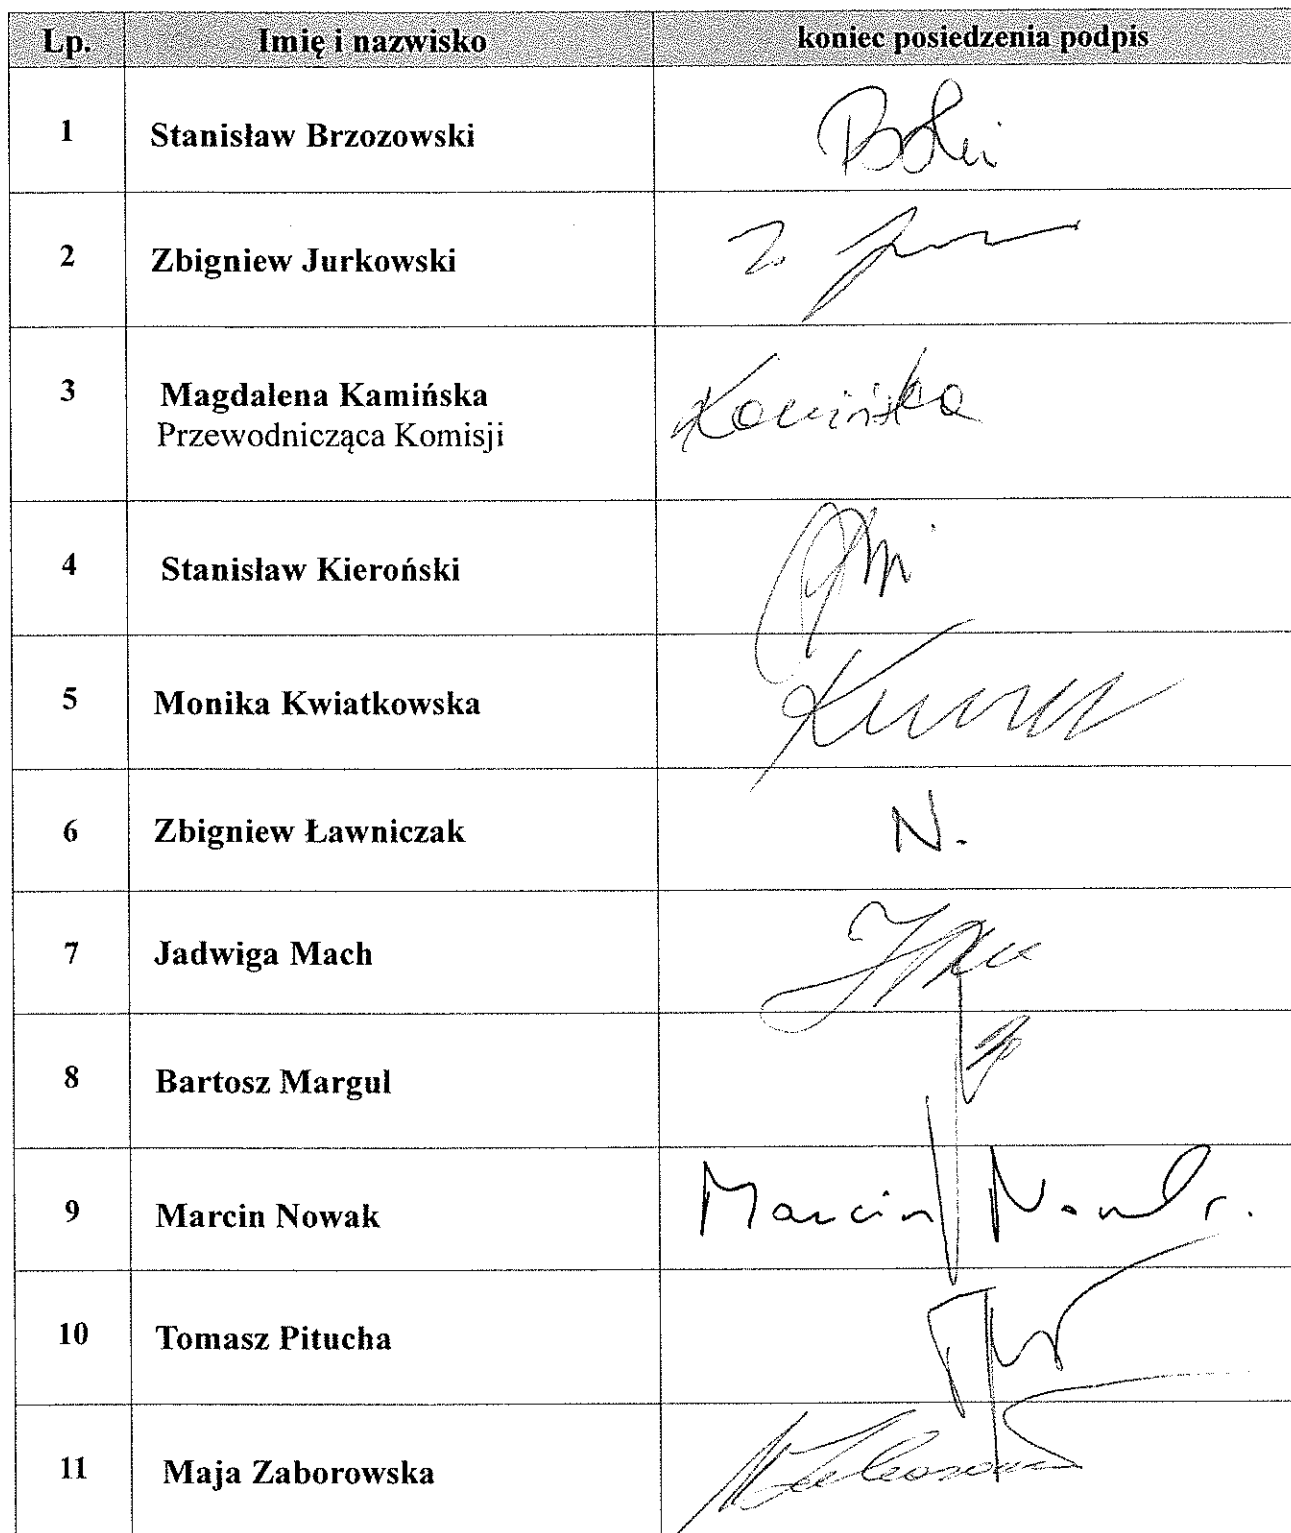 Lp. Imię i nazwisko koniec posiedzenia podpis
1 Stanisław Brzozowski
2 Zbigniew Jurkowski
3 Magdalena Kamińska Kamińska
Przewodnicząca Komisji
4 Stanisław Kieroński
5 Monika Kwiatkowska
6 Zbigniew Ławniczak N.
7 Jadwiga Mach
8 Bartosz Margul
9 Marcin Nowak Marcin Nowak
10 Tomasz Pitucha
11 Maja Zaborowska